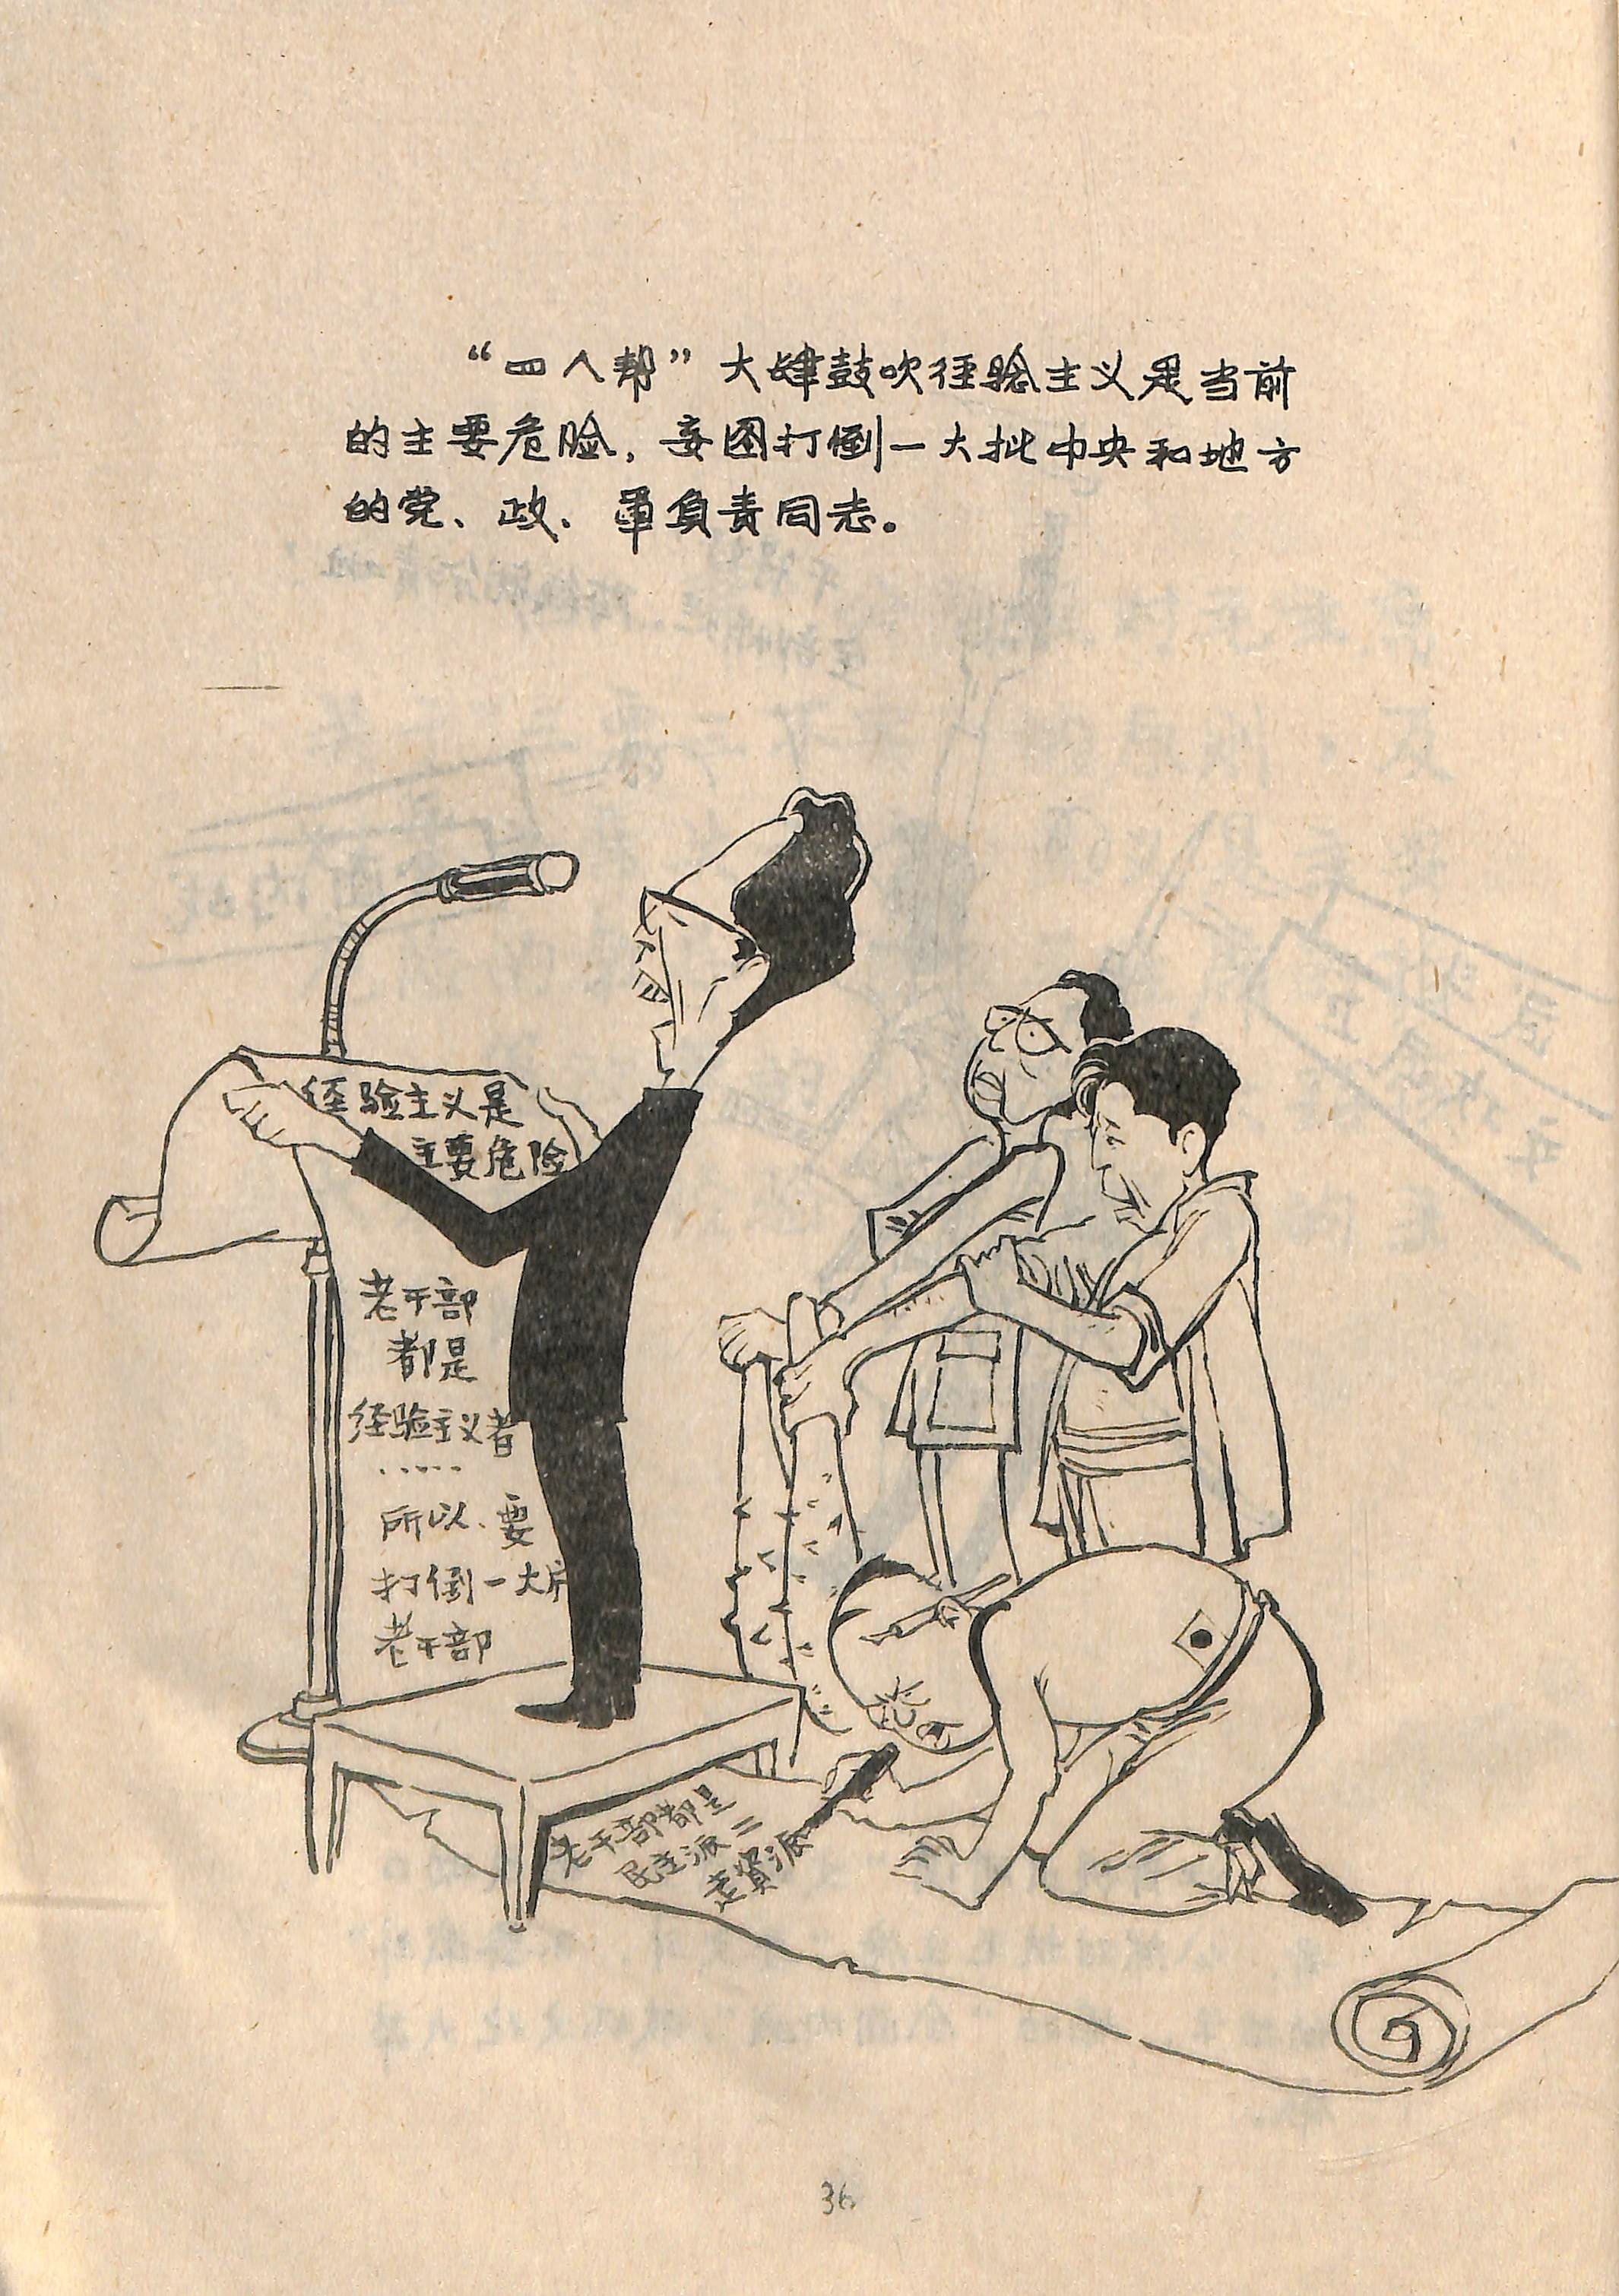 “四人帮”大肆鼓吹径验主义是当前
的主要危险，妄图打倒一大批中央和地方
的党、政、軍負責同志。
径验主义是
主要危险
老干部
都是
径验主义者
·····
所以、要
打倒一大
老干部
老干部都是
民主派＝
走資派
36